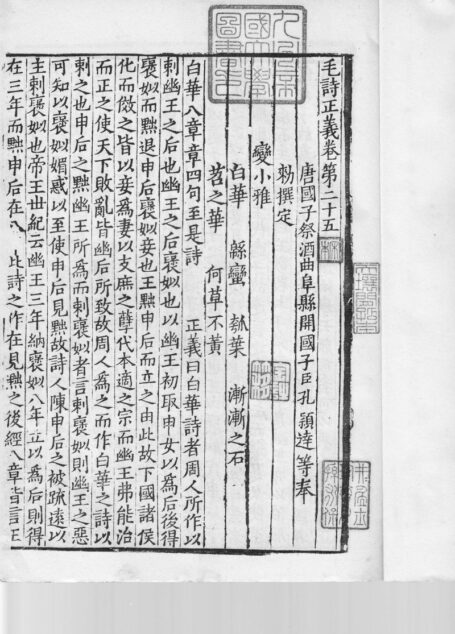 毛詩正義卷第二十五
唐國子祭酒曲阜縣開國子臣孔穎達等奉
勑撰定
變小雅
白華 緜蠻 瓠葉 漸漸之石
苕之華 何草不黃
白華八章章四句至是詩 正義曰白華詩者周人所作以
刺幽王之后也幽王之后褒姒也以幽王初取申女以為后後得
褒姒而黜退申后褒姒妾也王黜申后而立之由此故下國諸侯
化而傚之皆以妾為妻以支庶之孽代本適之宗而幽王弗能治
而正之使天下敗亂皆幽后所致故周人為之而作白華之詩以
刺之也申后之黜幽王所為而刺褒姒者言刺褒姒則幽王之惡
可知以褒姒媚惑以至使申后見黜故詩人陳申后之被疏遠以
主刺褒姒也帝王世紀云幽王三年納褒姒八年立以為后則得
在三年而黜申后在八 此詩之作在見黜之後經八章皆言王